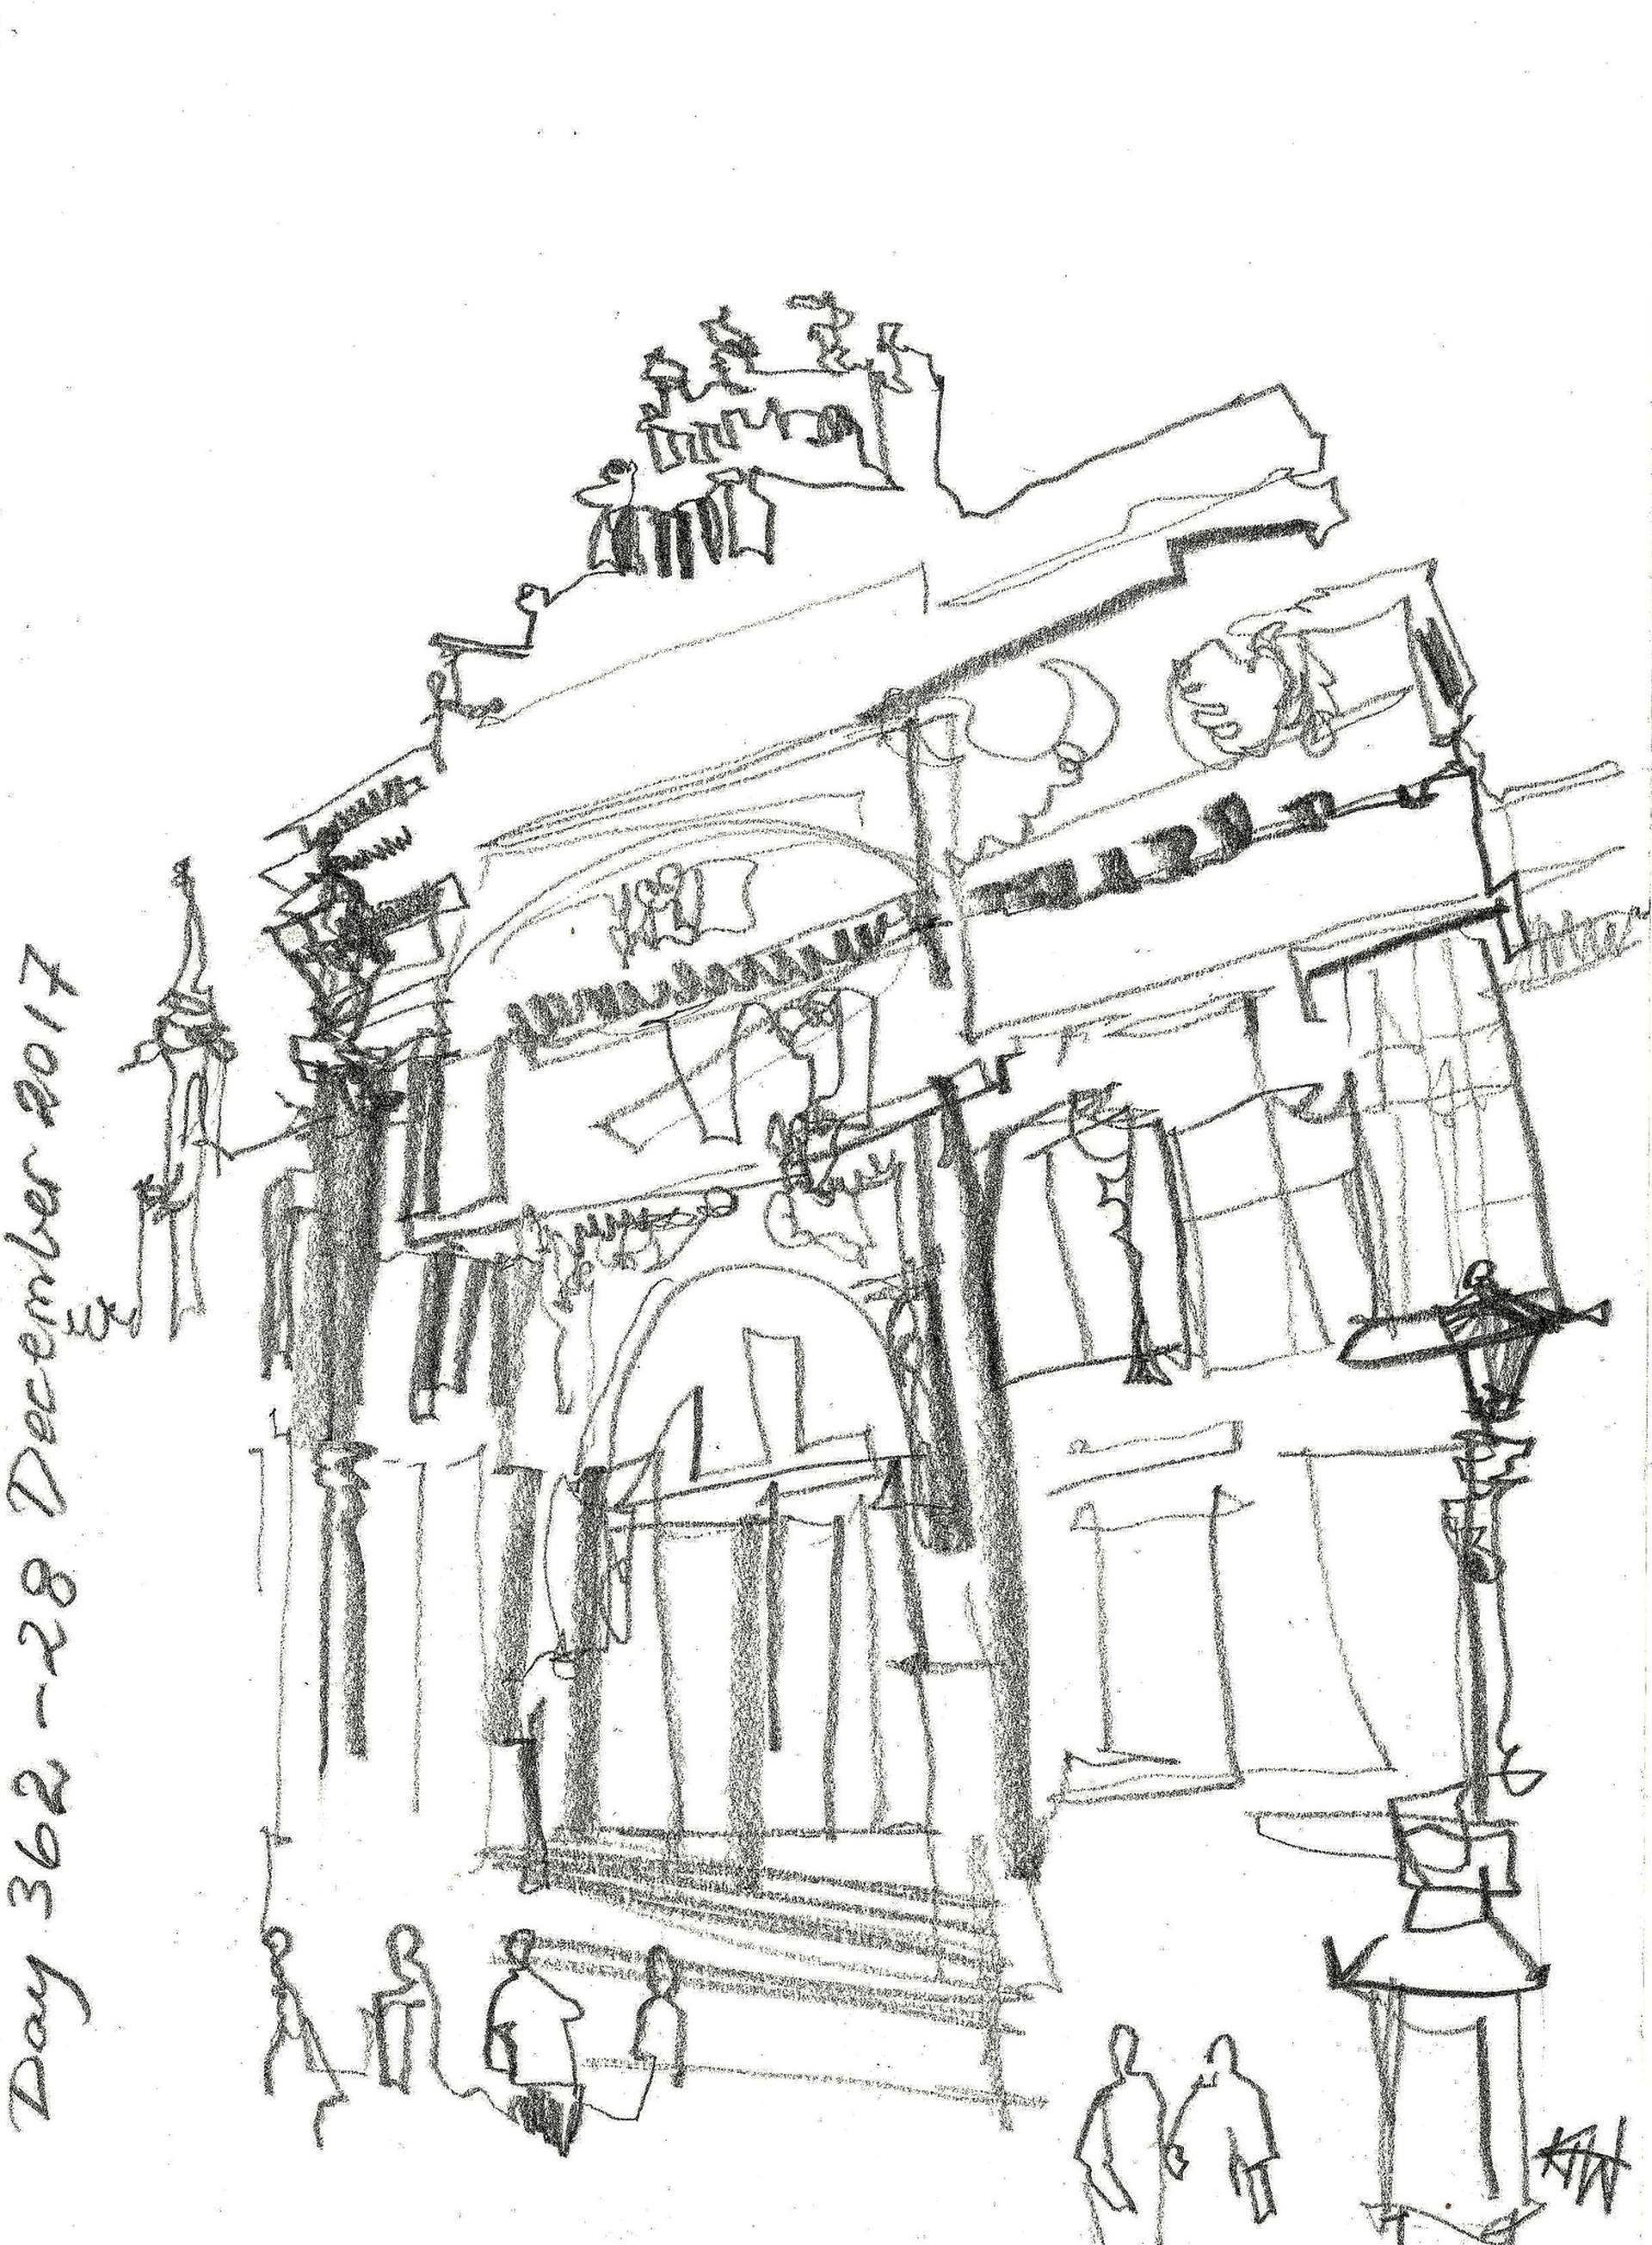 Day 362 - 28 December 2017